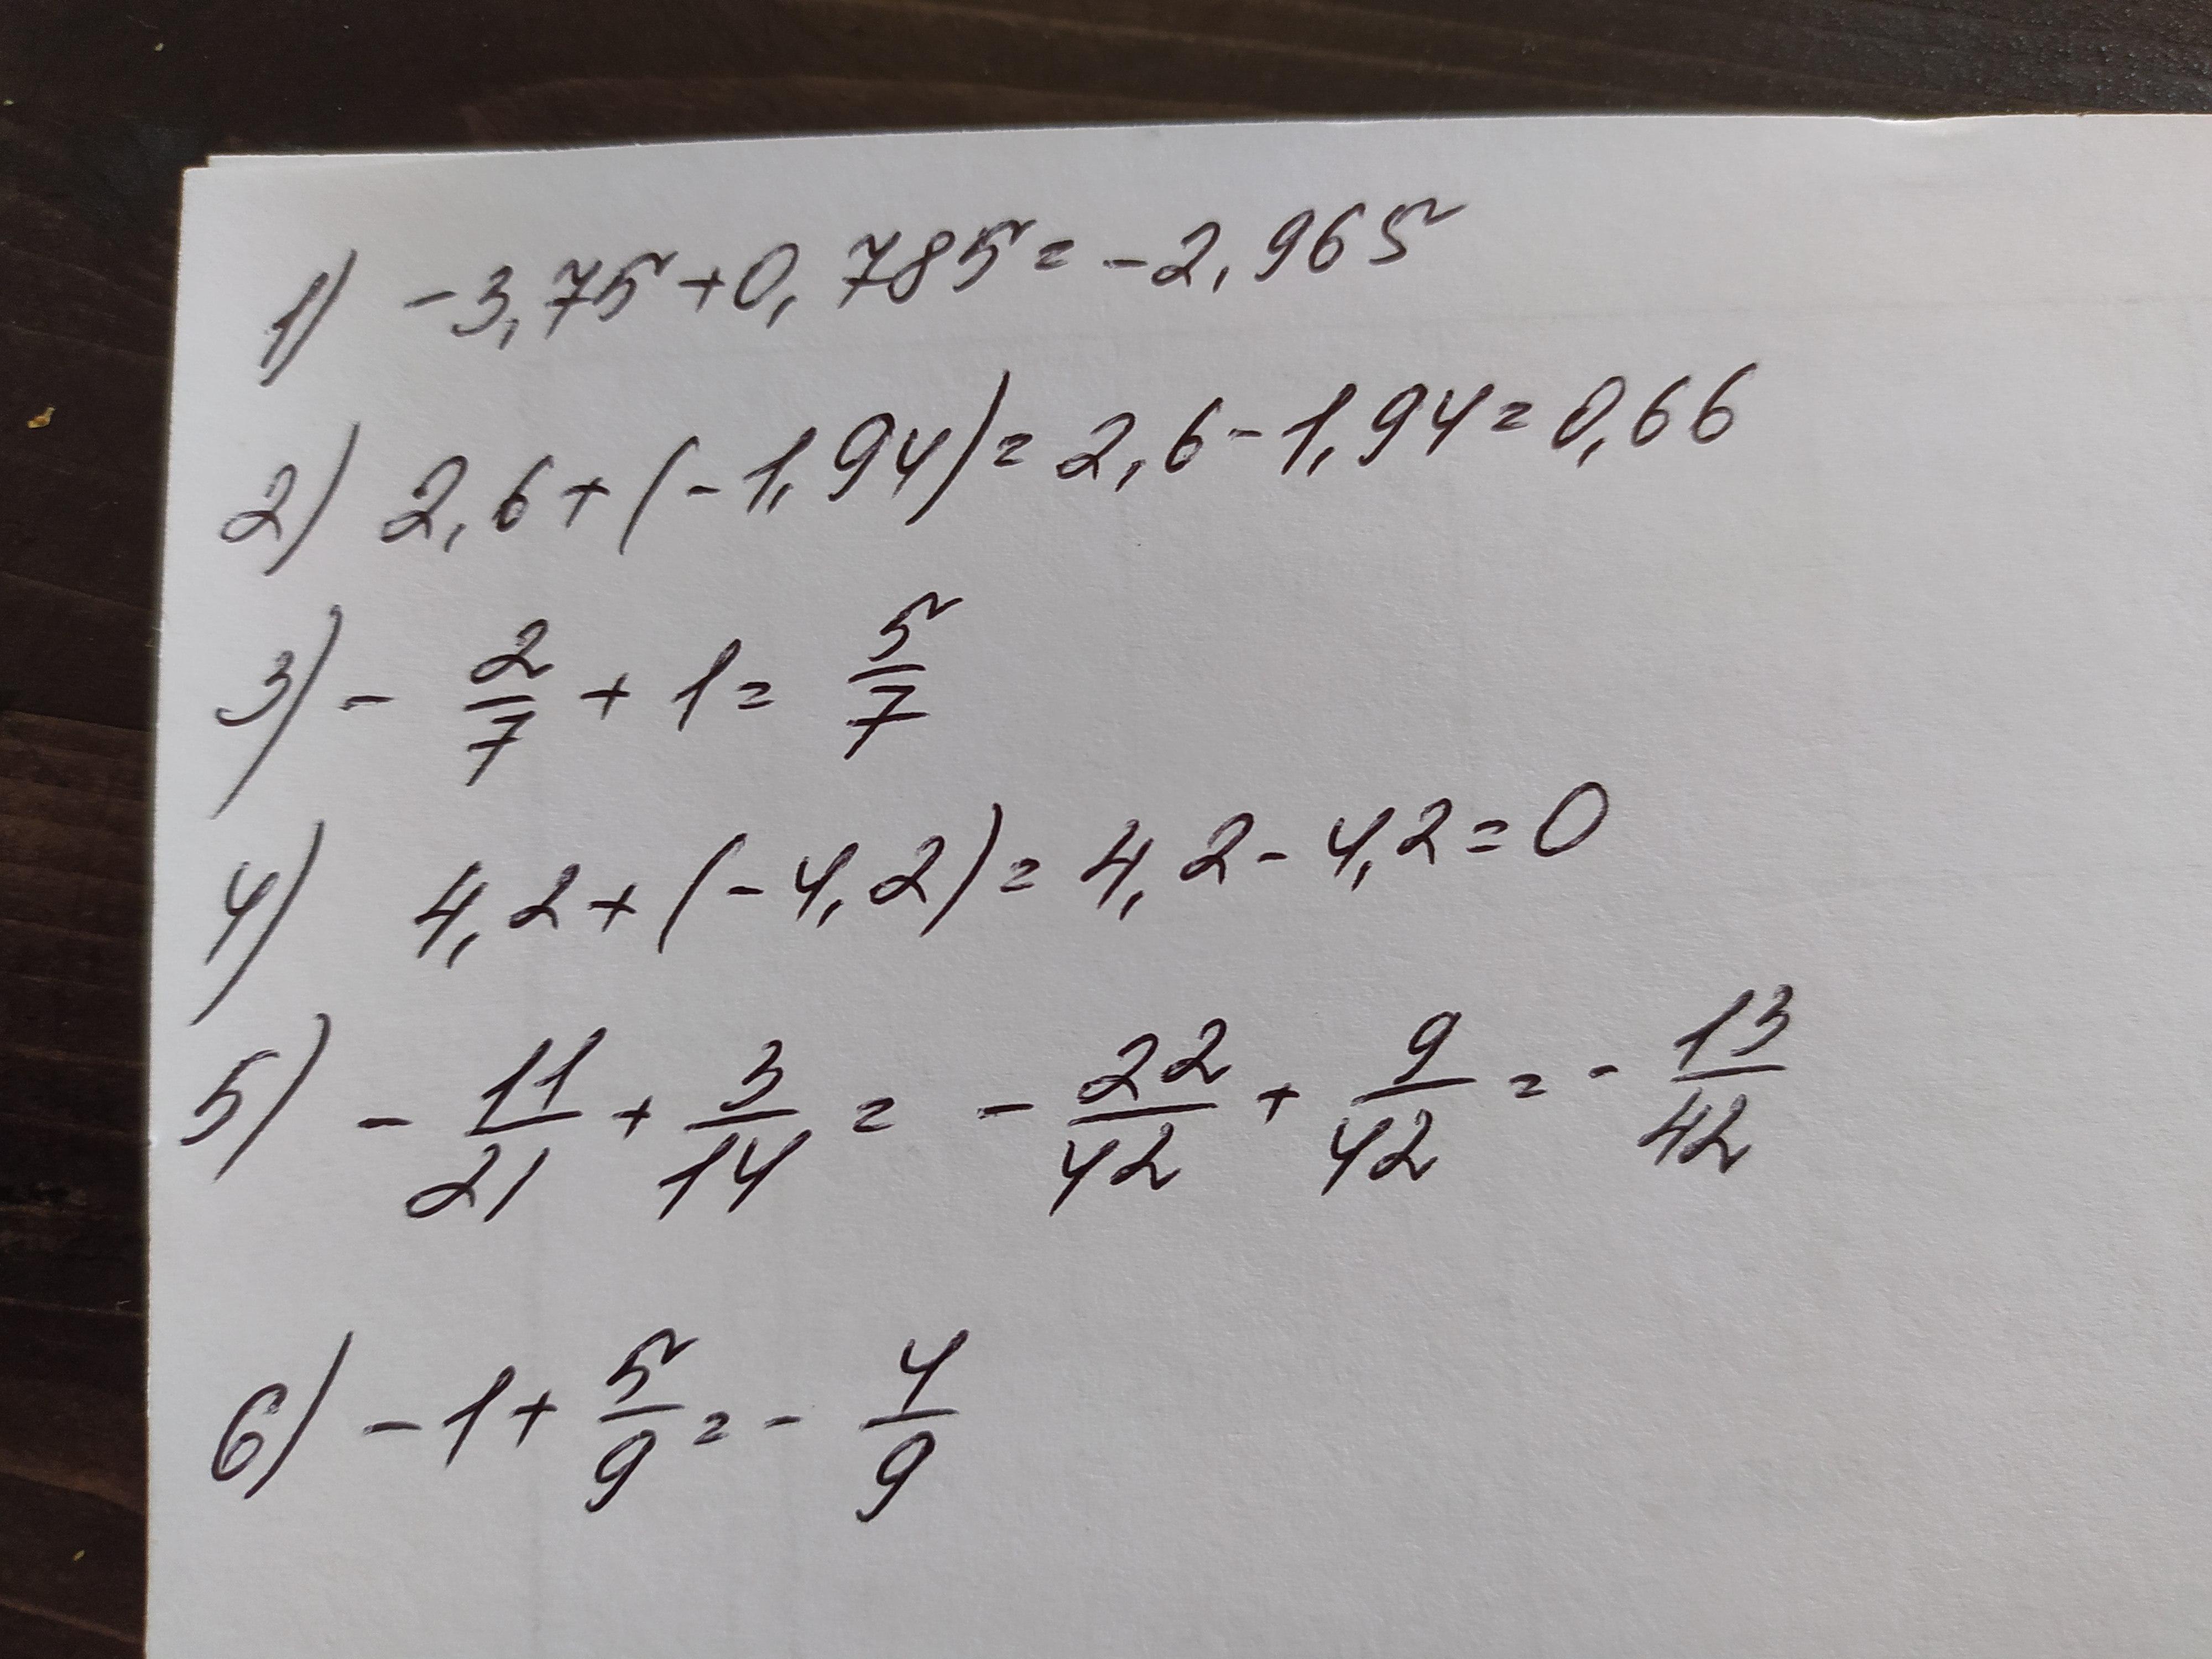 1) -3,75+0,785=-2,965
2) 2,6+(-1,94)=2,6-1,94=0,66
3) - 2/7 + 1 = 5/7
4) 4,2+(-4,2)=4,2-4,2=0
5) - 11/21 + 3/14 = - 22/42 + 9/42 = - 13/42
6) -1+ 5/9 = - 4/9